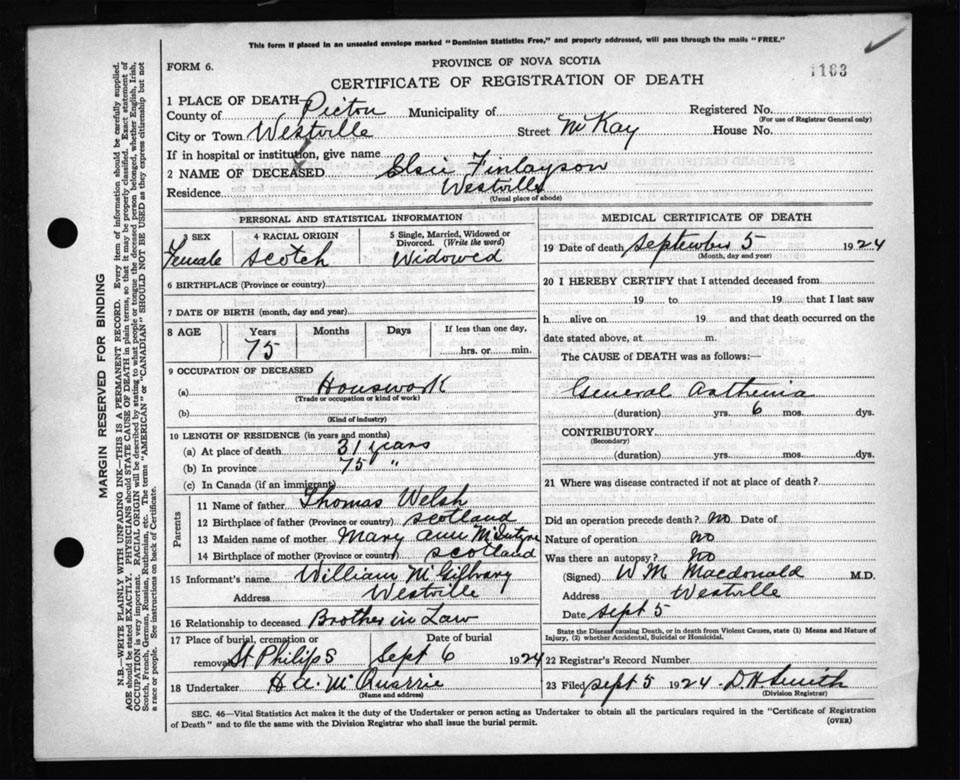 This form if placed in an unsealed envelope marked "Dominion Statistics Free," and properly addressed, will pass through the mails "FREE."
FORM 6.
PROVINCE OF NOVA SCOTIA
1163
CERTIFICATE OF REGISTRATION OF DEATH
1 PLACE OF DEATH
County of Pictou Municipality of Registered No.
(For use of Registrar General only)
City or Town Westville Street McKay House No.
If in hospital or institution, give name
2 NAME OF DECEASED Elsie Finlayson
Residence Westville
(Usual place of abode)
PERSONAL AND STATISTICAL INFORMATION
3 SEX 4 RACIAL ORIGIN 5 Single, Married, Widowed or Divorced. (Write the word)
Female Scotch Widowed
6 BIRTHPLACE (Province or country)
7 DATE OF BIRTH (month, day and year)
8 AGE Years Months Days If less than one day,
75 hrs. or min.
9 OCCUPATION OF DECEASED
(a) Houswork
(Trade or occupation or kind of work)
(b)
(Kind of industry)
10 LENGTH OF RESIDENCE (in years and months)
(a) At place of death 31 years
(b) In province 75 "
(c) In Canada (if an immigrant)
Parents
11 Name of father Thomas Welsh
12 Birthplace of father (Province or country) Scotland
13 Maiden name of mother Mary Ann McIntyre
14 Birthplace of mother (Province or country) Scotland
15 Informant's name William McGilvary
Address Westville
16 Relationship to deceased Brother in Law
17 Place of burial, cremation or Date of burial
removal St Philips Sept 6 1924
18 Undertaker H. A. McQuarrie
(Name and address)
MEDICAL CERTIFICATE OF DEATH
19 Date of death September 5 1924
(Month, day and year)
20 I HEREBY CERTIFY that I attended deceased from
19 to 19 that I last saw
h alive on 19 and that death occurred on the
date stated above, at m.
The CAUSE of DEATH was as follows:—
General Asthenia
(duration) yrs. 6 mos. dys.
CONTRIBUTORY
(Secondary)
(duration) yrs. mos. dys.
21 Where was disease contracted if not at place of death?
Did an operation precede death? no Date of
Nature of operation no
Was there an autopsy? no
(Signed) W M Macdonald M.D.
Address Westville
Date Sept 5
State the Disease causing Death, or in death from Violent Causes, state (1) Means and Nature of
Injury, (2) whether Accidental, Suicidal or Homicidal.
22 Registrar's Record Number
23 Filed Sept 5 1924 D. H. Smith
(Division Registrar)
SEC. 46—Vital Statistics Act makes it the duty of the Undertaker or person acting as Undertaker to obtain all the particulars required in the "Certificate of Registration
of Death" and to file the same with the Division Registrar who shall issue the burial permit.
(OVER)
MARGIN RESERVED FOR BINDING
N.B.—WRITE PLAINLY WITH UNFADING INK—THIS IS A PERMANENT RECORD. Every item of information should be carefully supplied.
AGE should be stated EXACTLY. PHYSICIANS should STATE CAUSE OF DEATH in plain terms, so that it may be properly classified. Exact statement of
OCCUPATION is very important. RACIAL ORIGIN will be described by stating to what people or tongue the deceased person belonged, whether English, Irish,
Scotch, French, German, Russian, Ruthenian, etc. The terms "AMERICAN" or "CANADIAN" SHOULD NOT BE USED as they express citizenship but not
a race or people. See instructions on back of Certificate.